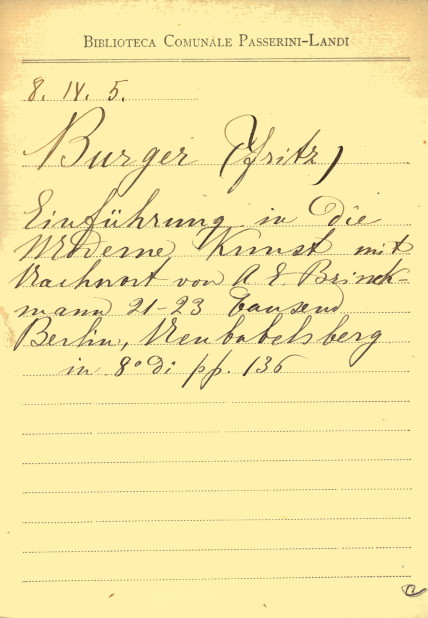 BIBLIOTECA COMUNALE PASSERINI-LANDI
8. IV. 5.
Burger (Fritz)
Einführung in die
Moderne Kunst mit
Nachwort von A. E. Brinck-
mann 21-23 Tausend
Berlin, Neubabelsberg
in 8° di pp. 136